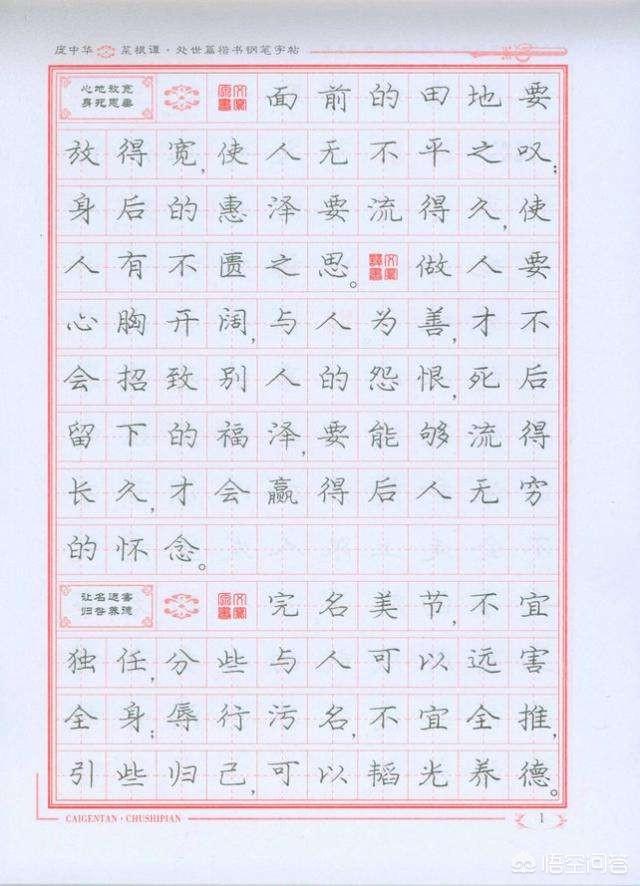 庞中华 菜根谭·处世篇楷书钢笔字帖
心地放宽
身死垂
面前的田地要
放得宽,使人无不平之叹;
身后的惠泽要流得久,使
人有不匮之思。做人要
心胸开阔,与人为善,才不
会招致别人的怨恨,死后
留下的福泽,要能够流得
长久,才会赢得后人无穷
的怀念。
让名远害
归咎养德
完名美节,不宜
独任,分些与人可以远害
全身;辱行污名,不宜全推,
引些归己,可以韬光养德。
CAIGENTAN·CHUSHIPIAN
1
悟空问答